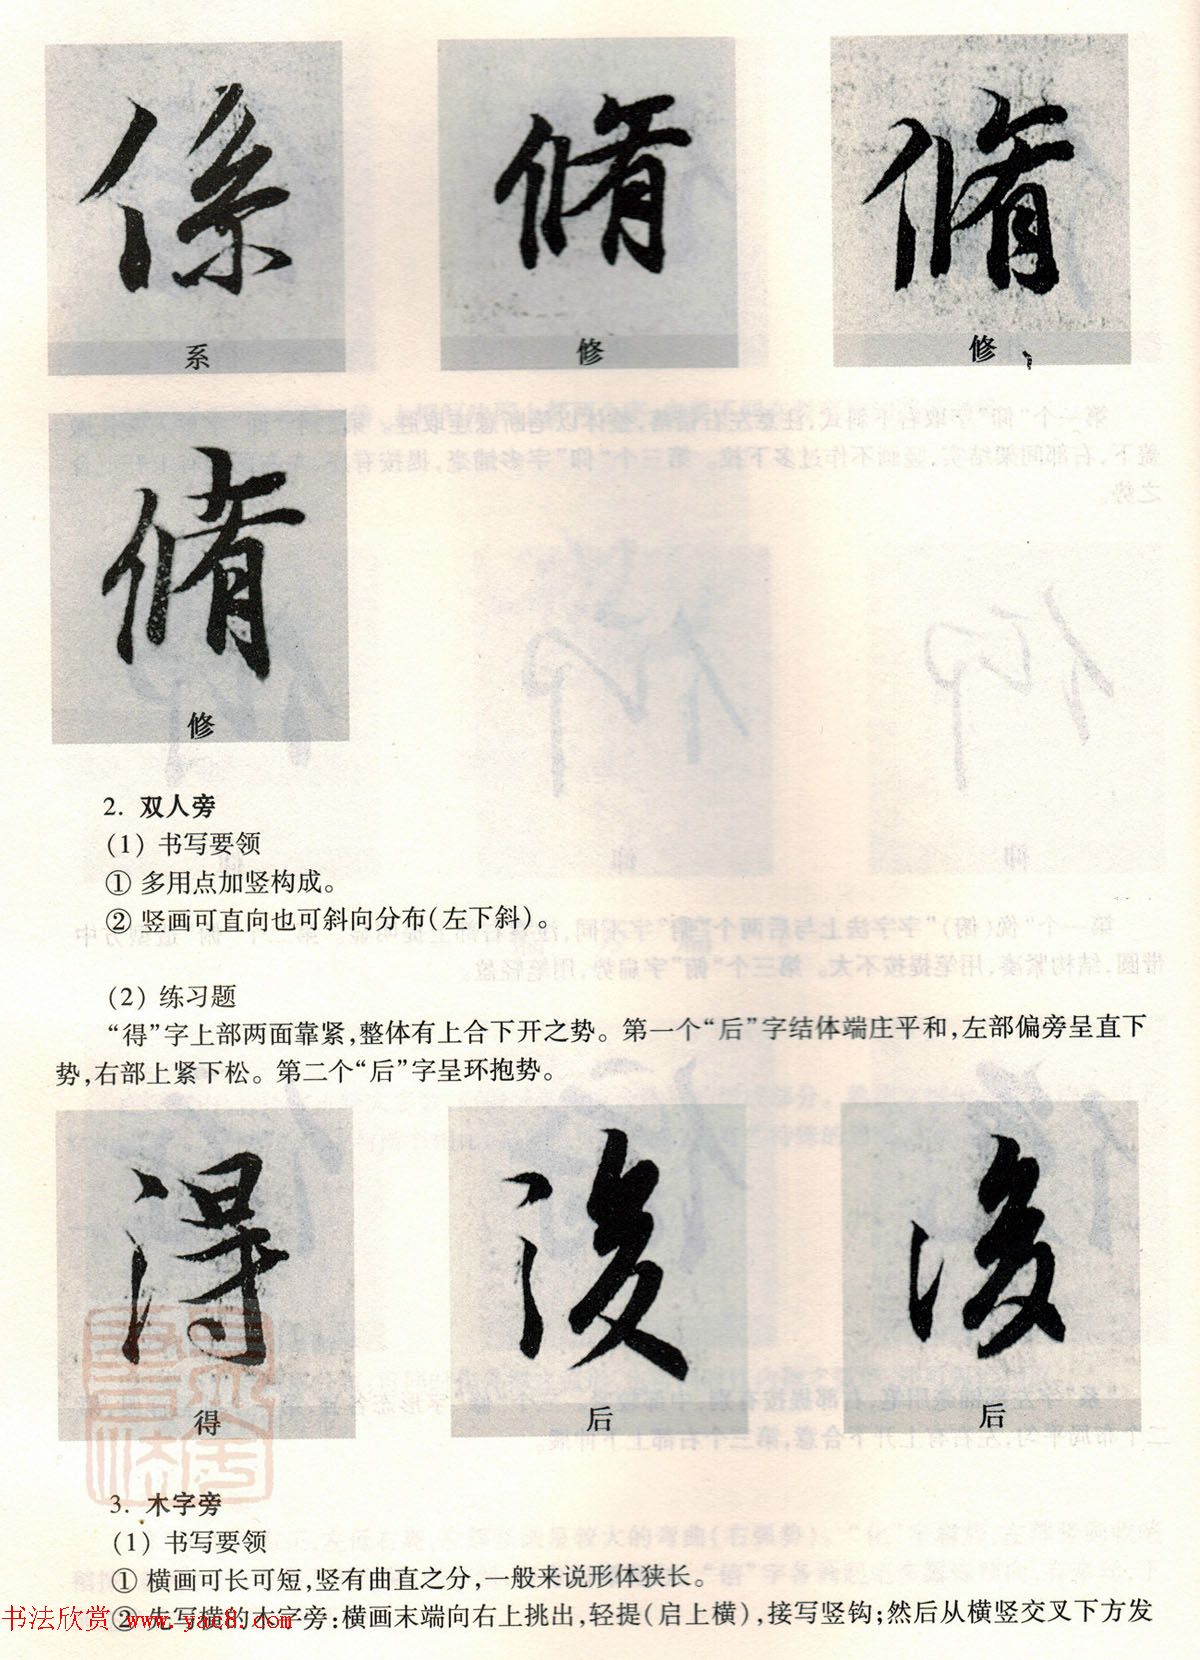 係 脩 脩
系 修 修
脩
修
2. 双人旁
(1) 书写要领
① 多用点加竖构成。
② 竖画可直向也可斜向分布(左下斜)。
(2) 练习题
“得”字上部两面靠紧,整体有上合下开之势。第一个“后”字结体端庄平和,左部偏旁呈直下
势,右部上紧下松。第二个“后”字呈环抱势。
得 後 後
得 后 后
3. 木字旁
(1) 书写要领
① 横画可长可短,竖有曲直之分,一般来说形体狭长。
② 先写横的木字旁:横画末端向右上挑出,轻提(启上横),接写竖钩;然后从横竖交叉下方发
书法欣赏 www.yac8.com